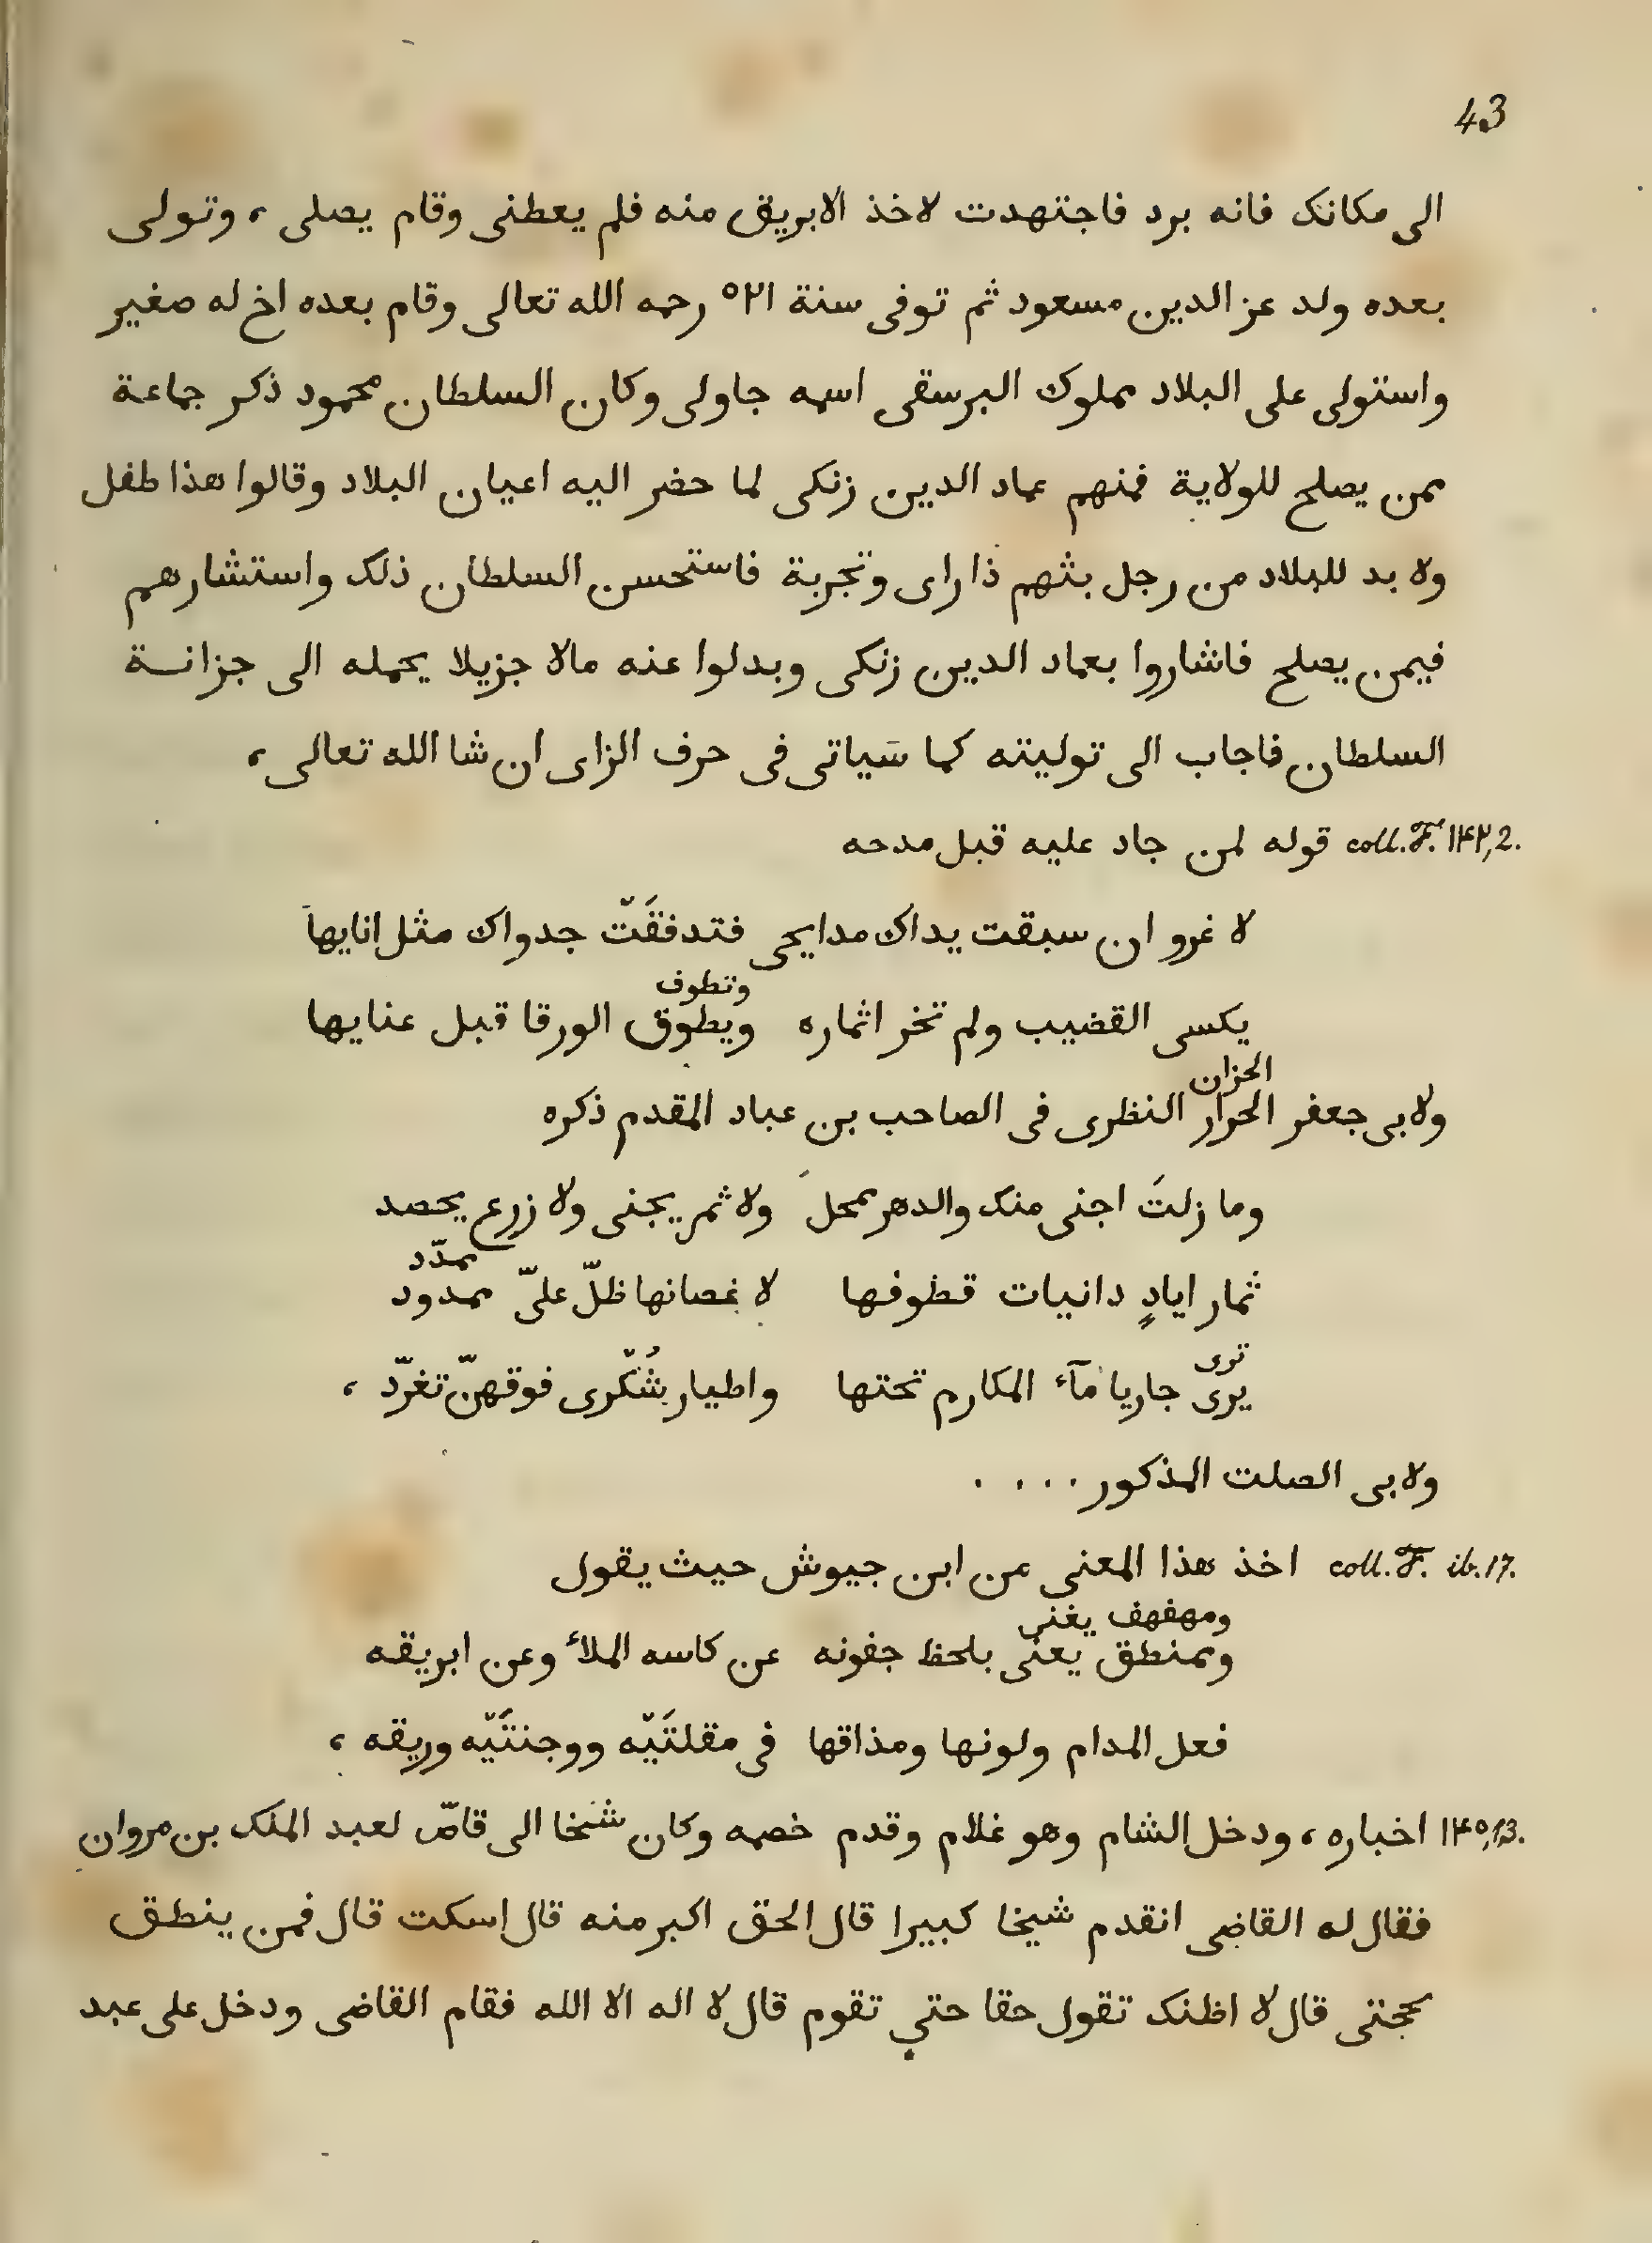 43
الى مكانك فانه برد فاجتهدت لاخذ الابريق منه فلم يعطنى وقام يصلى ، وتولى
بعده ولد عز الدين مسعود ثم توفى سنة ٥٢١ رحمه الله تعالى وقام بعده اخ له صغير
واستولى على البلاد مملوك البرسقى اسمه جاولى وكان السلطان محمود ذكر جماعة
ممن يصلح للولاية فمنهم عماد الدين زنكى لما حضر اليه اعيان البلاد وقالوا هذا طفل
ولا بد للبلاد من رجل بثهم ذا راى وتجربة فاستحسن السلطان ذلك واستشارهم
فيمن يصلح فاشاروا بعماد الدين زنكى وبدلوا عنه مالا جزيلا يحمله الى جزانة
السلطان فاجاب الى توليته كما سَياتى فى حرف الزاى ان شا الله تعالى ،
coll. F. ١٤٢,2. قوله لمن جاد عليه قبل مدحه
لا غرو ان سبقت يداك مدايحى فتدفقَتّ جدواك مثل انايها
وتطوف
يكسى القضيب ولم تخر اثماره ويطوق الورقا قبل عنايها
الحزان
ولابى جعفر الحرار النظرى فى الصاحب بن عباد المقدم ذكره
وما زلتَ اجنى منك والدهر ممحل ولا ثمر يجنى ولا زرع يحصد
ممدّد
ثمار ايادٍ دانيات قطوفها لا غصانها ظلّ علىّ ممدود
ترى
يرى جاريا مآء المكارم تحتها واطيار بشُكّرى فوقهنّ تغرّد ،
ولابى الصلت المذكور . . . .
coll. F. ib. 17. اخذ هذا المعنى من ابن جيوش حيث يقول
ومهفهف يغنى
وممنطق يعنى بلحظ جفونه عن كاسه الملاء وعن ابريقه
فعل المدام ولونها ومذاقها فى مقلتَيّه ووجنتَيّه وريقه ،
١٤٥,13. اخباره ، ودخل الشام وهو غلام وقدم خصمه وكان شخا الى قاضّ لعبد الملك بن مروان
فقال له القاضى انقدم شيخا كبيرا قال الحق اكبر منه قال اسكت قال فمن ينطق
بحجتى قال لا اظنك تقول حقا حتي تقوم قال لا اله الا الله فقام القاضى ودخل على عبد